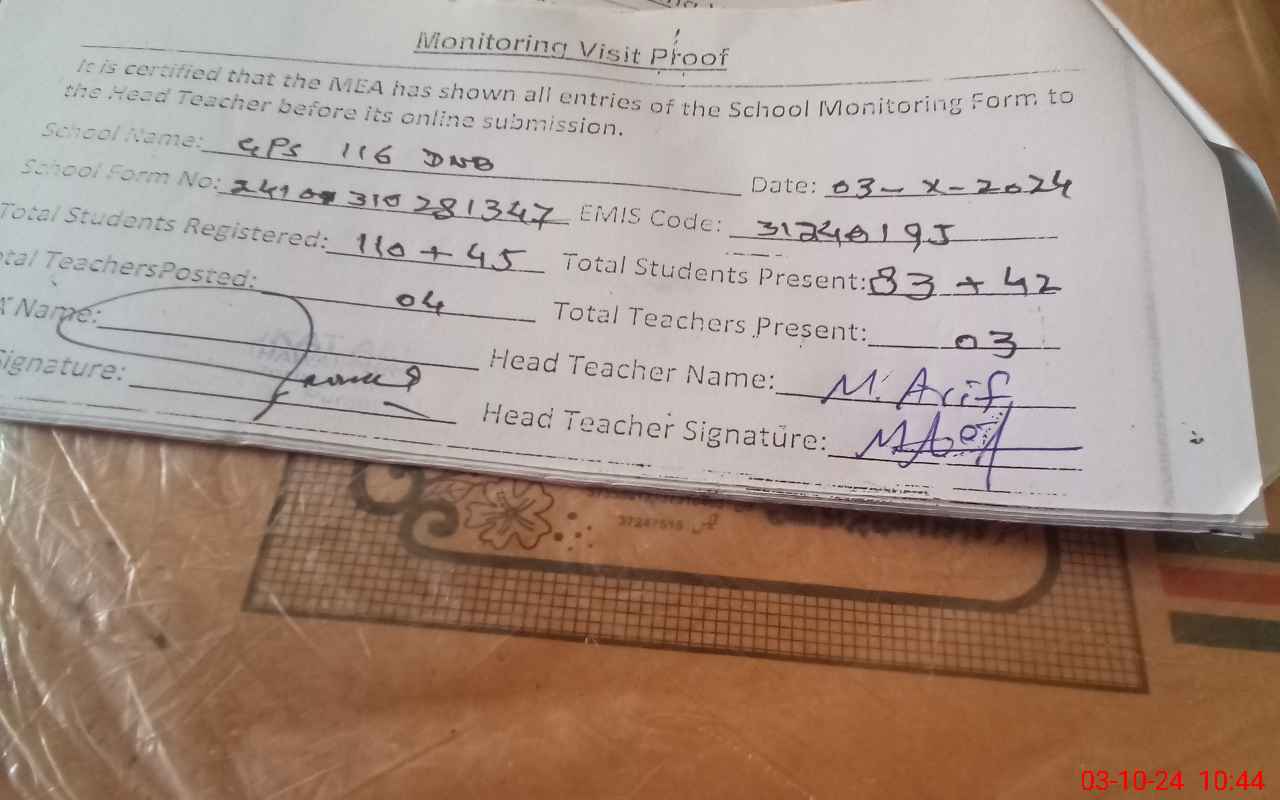 Monitoring Visit Proof
It is certified that the MEA has shown all entries of the School Monitoring Form to
the Head Teacher before its online submission.
School Name: GPS 116 DNB Date: 03-X-2024
School Form No: 310281347 EMIS Code: 31240195
Total Students Registered: 110 + 45 Total Students Present: 83 + 42
tal TeachersPosted: 04 Total Teachers Present: 03
Name: Head Teacher Name: M. Arif
Signature: Head Teacher Signature:
37247516
03-10-24 10:44